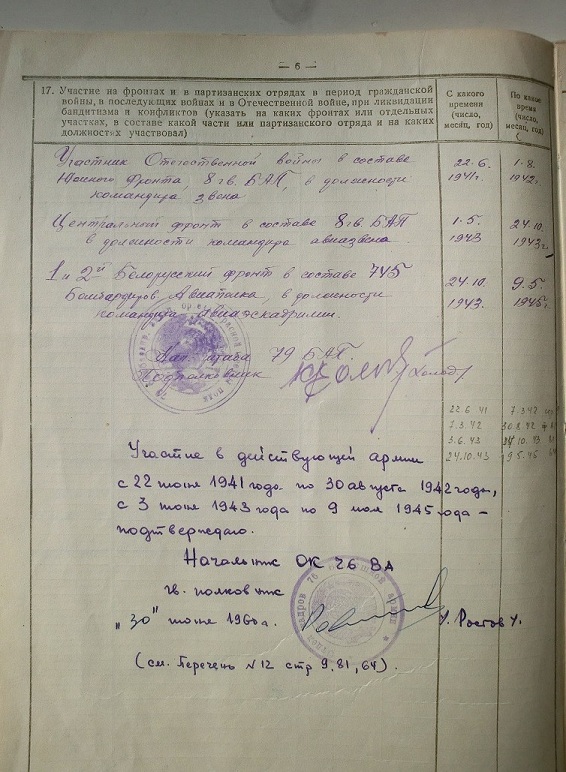 — 6 —
17. Участие на фронтах и в партизанских отрядах в период гражданской
войны, в последующих войнах и в Отечественной войне, при ликвидации
бандитизма и конфликтов (указать на каких фронтах или отдельных
участках, в составе какой части или партизанского отряда и на каких
должностях участвовал)
С какого
времени
(число,
месяц, год)
По какое
время
(число,
месяц, год)
Участник Отечественной войны в составе
Южного Фронта, 8 гв. БАП, в должности
командира звена
22.6.
1941г.
1.8.
1942г.
Центральный фронт в составе 8 гв. БАП
в должности командира авиазвена
1.5.
1943
24.10.
1943г.
1 и 2й Белорусский фронт в составе 745
Бомбардиров Авиаполка, в должности
командира авиаэскадрилии.
24.10.
1943.
9.5.
1945г.
Нач. штаба 79 БАП
Подполковник
22.6.41
7.3.42
7.3.42
30.8.42
3.6.43
24.10.43
24.10.43
9.5.45
Участие в действующей армии
с 22 июня 1941 года по 30 августа 1942 года,
с 3 июня 1943 года по 9 мая 1945 года –
подтверждаю.
Начальник ОК 76 ВА
гв. полковник
„30" июня 1960г.
/. Ростов /.
(см. Перечень N 12 стр 9,81,64).